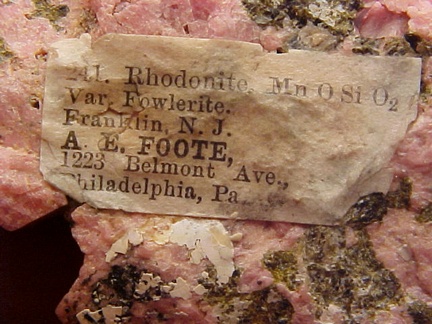 241. Rhodonite. Mn O Si O2
Var. Fowlerite.
Franklin, N. J.
A. E. FOOTE,
1223 Belmont Ave.,
Philadelphia, Pa